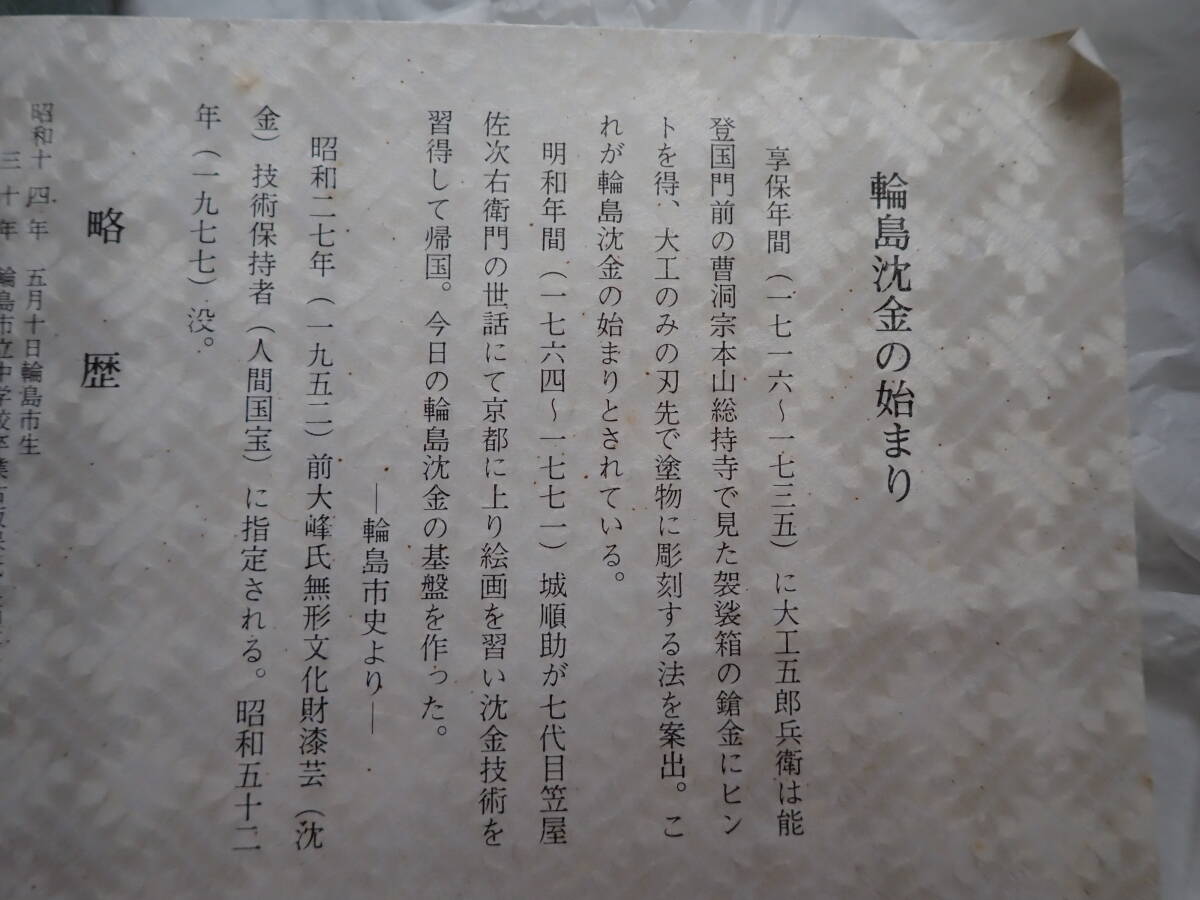 輪島沈金の始まり
享保年間（一七一六～一七三五）に大工五郎兵衛は能
登国門前の曹洞宗本山総持寺で見た袈裟箱の鎗金にヒン
トを得、大工のみの刃先で塗物に彫刻する法を案出。こ
れが輪島沈金の始まりとされている。
明和年間（一七六四～一七七一）城順助が七代目笠屋
佐次右衛門の世話にて京都に上り絵画を習い沈金技術を
習得して帰国。今日の輪島沈金の基盤を作った。
―輪島市史より―
昭和二七年（一九五二）前大峰氏無形文化財漆芸（沈
金）技術保持者（人間国宝）に指定される。昭和五十二
年（一九七七）没。
略歴
昭和十四年 五月十日輪島市生
三十年 輪島市立中学校卒業